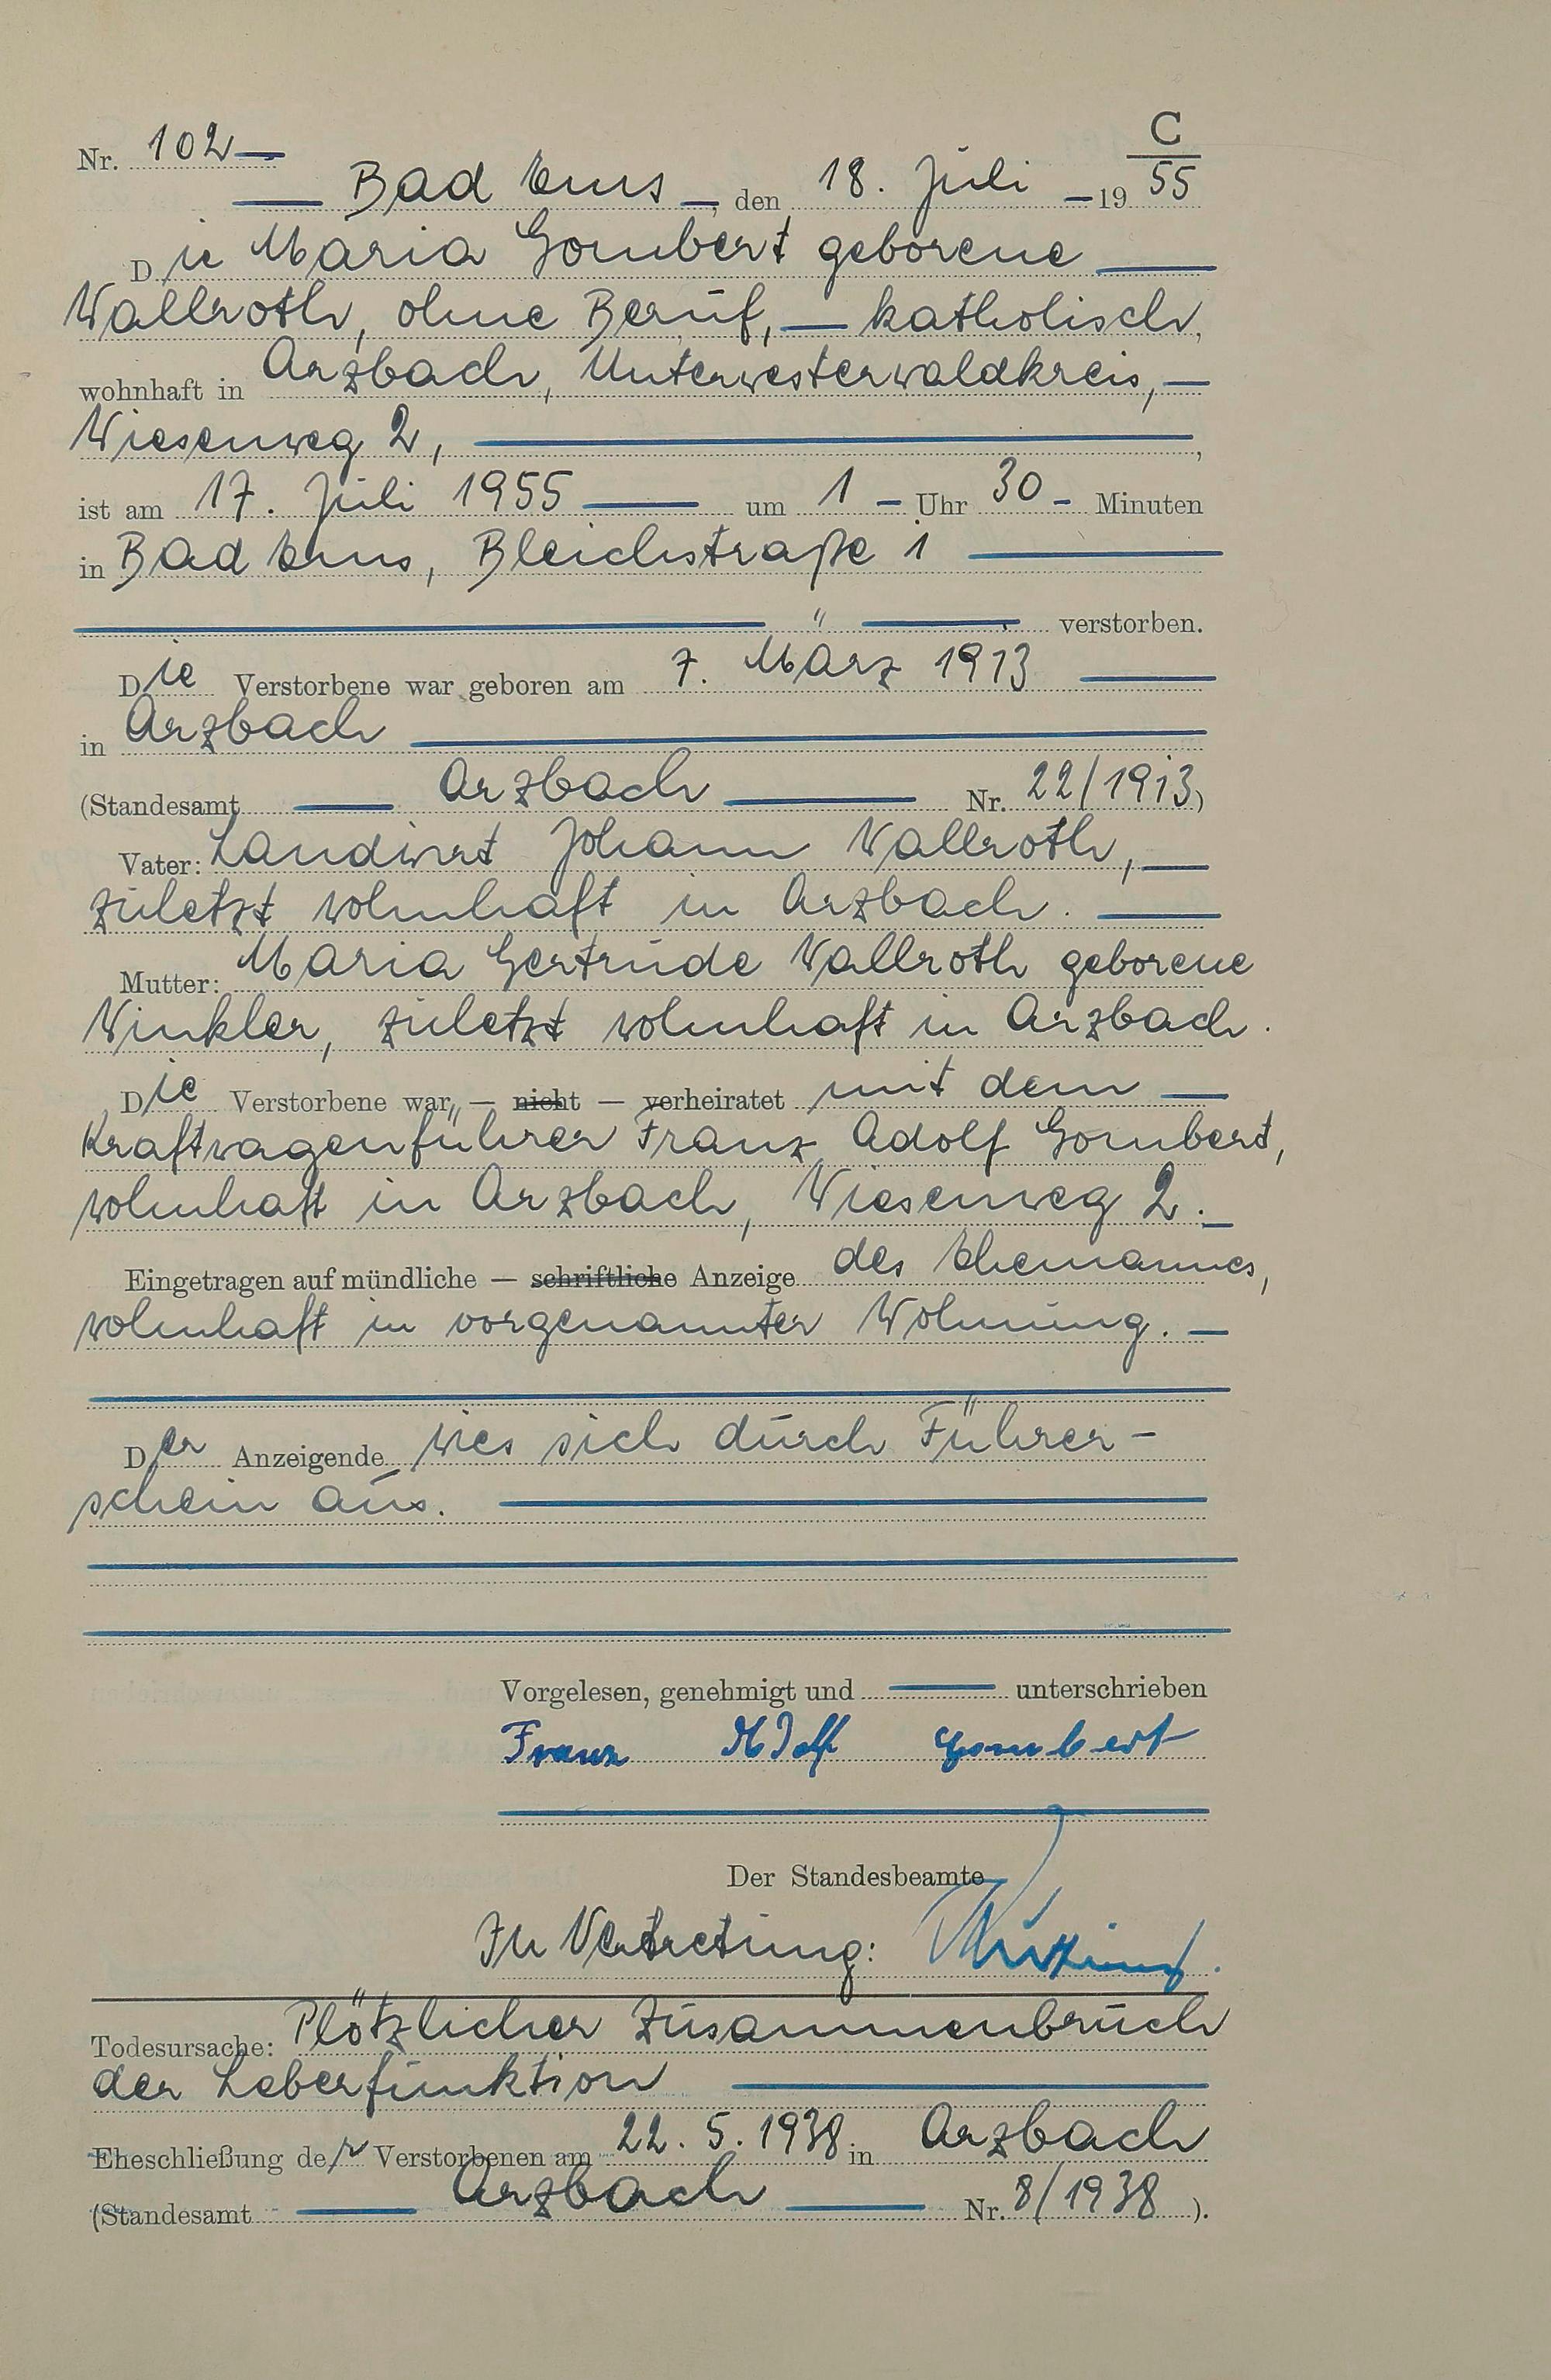 C
Nr. 102
Bad Ems, den 18. Juli 1955
Die Maria Gombert geborene
Wallroth, ohne Beruf, katholisch,
wohnhaft in Arzbach, Unterwesterwaldkreis,
Wiesenweg 2,
ist am 17. Juli 1955 um 1 Uhr 30 Minuten
in Bad Ems, Bleichstraße 1
" verstorben.
Die Verstorbene war geboren am 7. März 1913
in Arzbach
(Standesamt Arzbach Nr. 22/1913)
Vater: Landwirt Johann Wallroth,
zuletzt wohnhaft in Arzbach.
Mutter: Maria Gertrude Wallroth geborene
Winkler, zuletzt wohnhaft in Arzbach.
Die Verstorbene war — nicht — verheiratet mit dem
Kraftwagenführer Franz Adolf Gombert,
wohnhaft in Arzbach, Wiesenweg 2.
Eingetragen auf mündliche — schriftliche Anzeige des Ehemannes,
wohnhaft in vorgenannter Wohnung.
Der Anzeigende wies sich durch Führer-
schein aus.
Vorgelesen, genehmigt und unterschrieben
Franz Adolf Gombert
Der Standesbeamte
In Vertretung:
Todesursache: Plötzlicher Zusammenbruch
der Leberfunktion
Eheschließung der Verstorbenen am 22. 5. 1938 in Arzbach
(Standesamt Arzbach Nr. 8/1938).